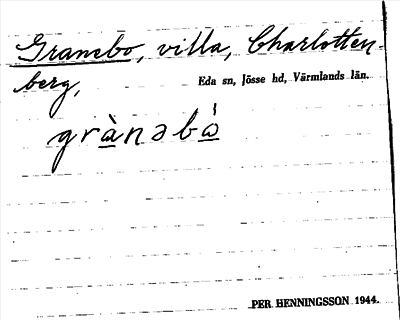 Granebo, villa, Charlotten-
berg,
Eda sn, Jösse hd, Värmlands län.
grànəbò
PER HENNINGSSON 1944.